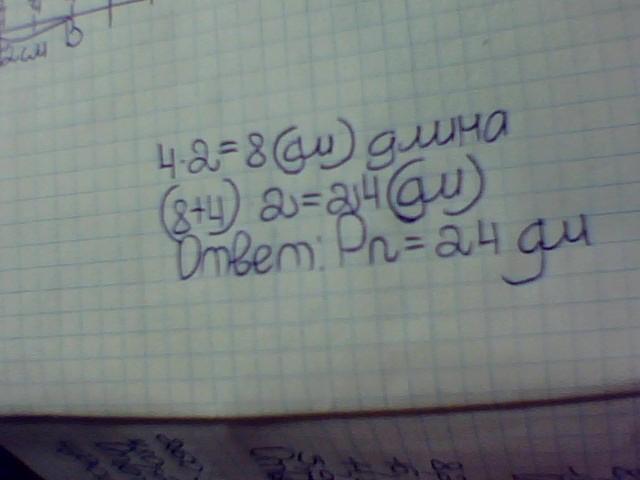 2см B
4·2=8(дм) длина
(8+4) 2=24(дм)
Ответ: Pп=24 дм